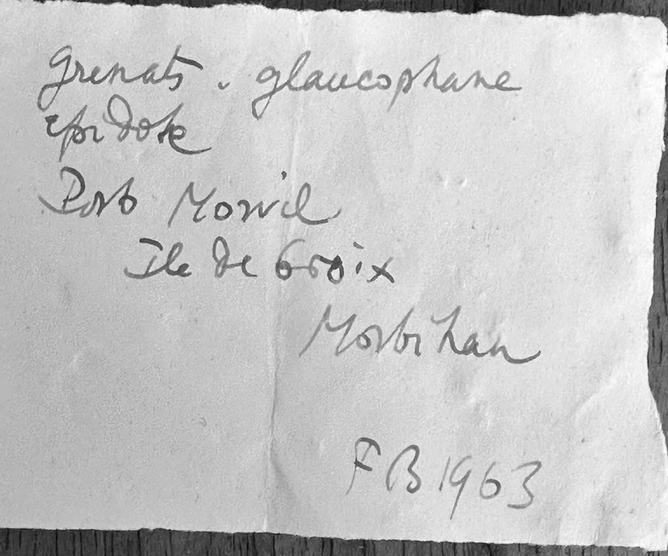 Grenats. glaucophane
epidote
Port Morvil
Ile de Groix
Morbihan
FB 1963